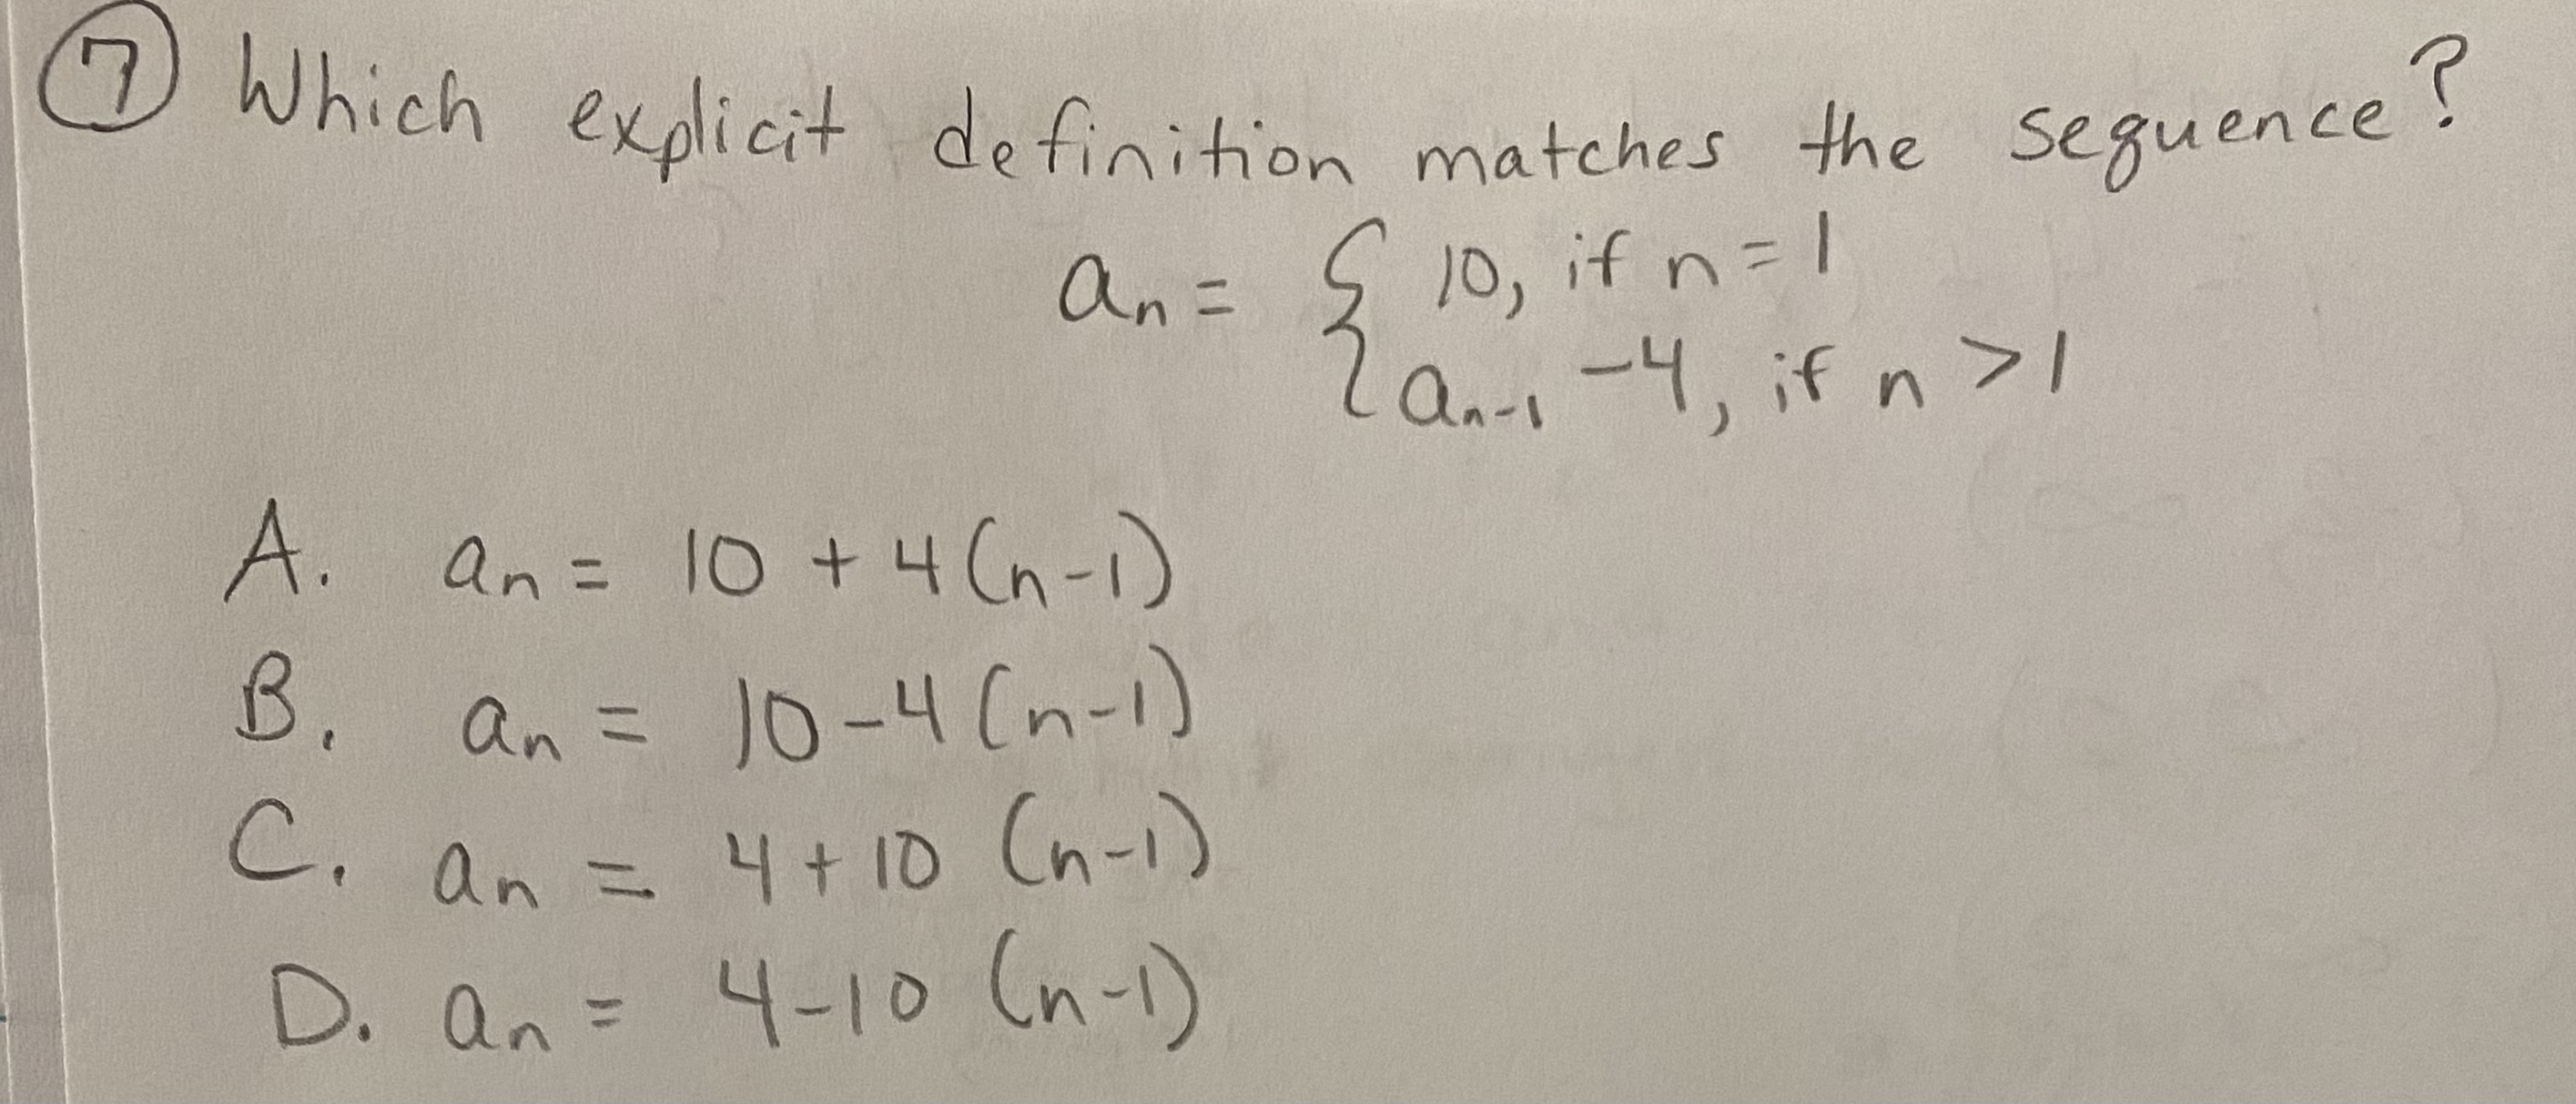 ⑦ Which explicit definition matches the sequence?
aₙ = { 10, if n = 1
aₙ₋₁ -4, if n > 1
A. aₙ = 10 + 4(n-1)
B. aₙ = 10 - 4(n-1)
C. aₙ = 4 + 10 (n-1)
D. aₙ = 4 - 10 (n-1)